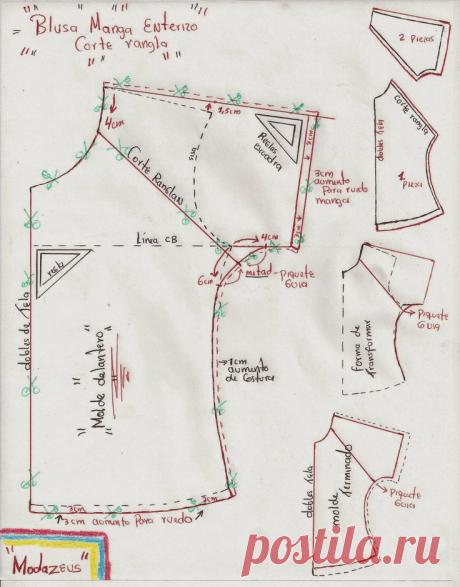 Blusa Manga Enterizo
Corte rangla
2 piezas
4cm
1,5cm
Reglas
escuadra
Corte Ranglan
sisa
3cm
3cm
aumento
Para ruedo
manga
Corte rangla
dobles tela
1 Pieza
Línea CB
4cm
3cm
6cm
mitad-piquete
GUIA
recta
dobles de tela
Molde delantero
1cm
aumento
de costura
Piquete
GUIA
forma de
transformar
3cm
3cm
3cm aumento Para ruedo
dobles tela
molde Terminado
Piquete
GUIA
"ModaZEUS"
postila.ru